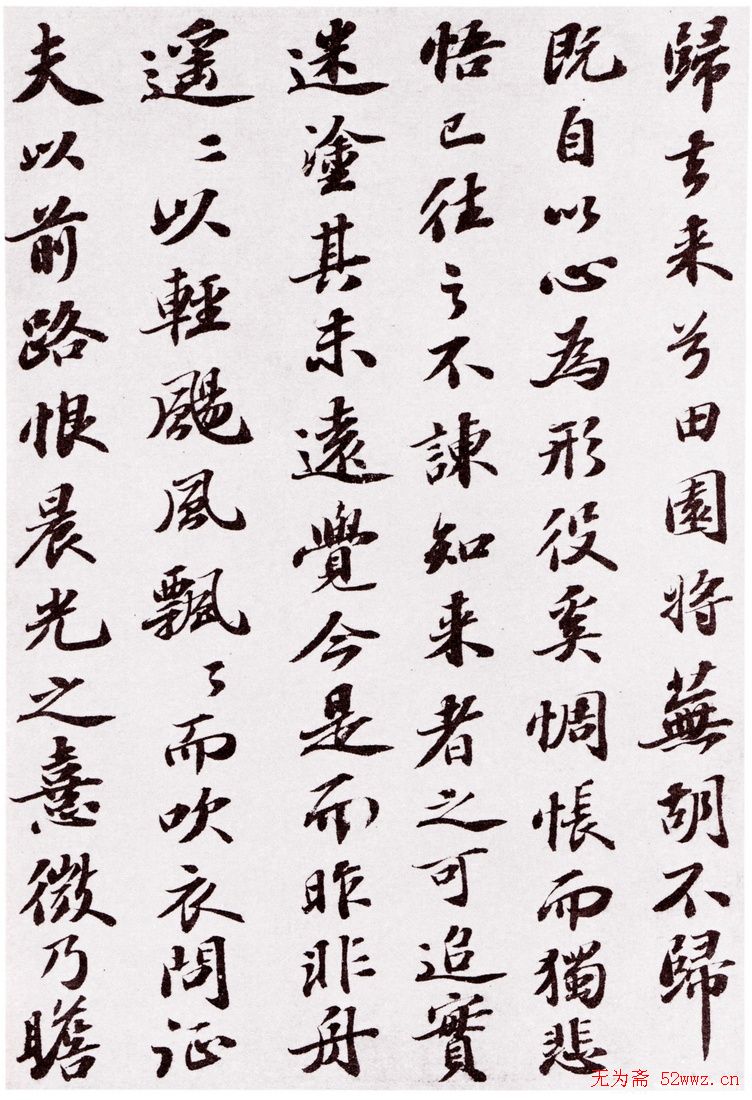 歸去来兮田園将蕪胡不歸
既自以心為形役奚惆悵而獨悲
悟已往之不諫知来者之可追實
迷塗其未遠覺今是而昨非舟
遥〻以輕颺風飄〻而吹衣問征
夫以前路恨晨光之憙微乃瞻
无为斋 52wwz.cn